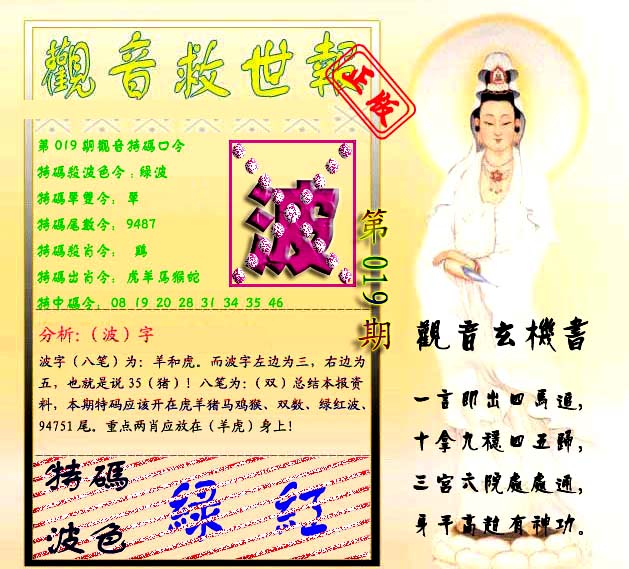 觀音救世報
正版
第019期觀音特碼口令
特碼殺波色令:綠波
特碼單雙令: 單
特碼尾數令: 9487
特碼殺肖令: 鷄
特碼出肖令: 虎羊馬猴蛇
特中碼令: 08 19 20 28 31 34 35 46
波
第019期
分析:（波）字
波字（八笔）为：羊和虎。而波字左边为三，右边为
五，也就是说35（猪）！八笔为：（双）总结本报资
料，本期特码应该开在虎羊猪马鸡猴、双数、绿红波、
94751尾。重点两肖应放在（羊虎）身上！
特碼
波色
綠 紅
觀音玄機書
一言即出四馬追，
十拿九穩四五歸，
三宮六院處處通，
身平高超有神功。